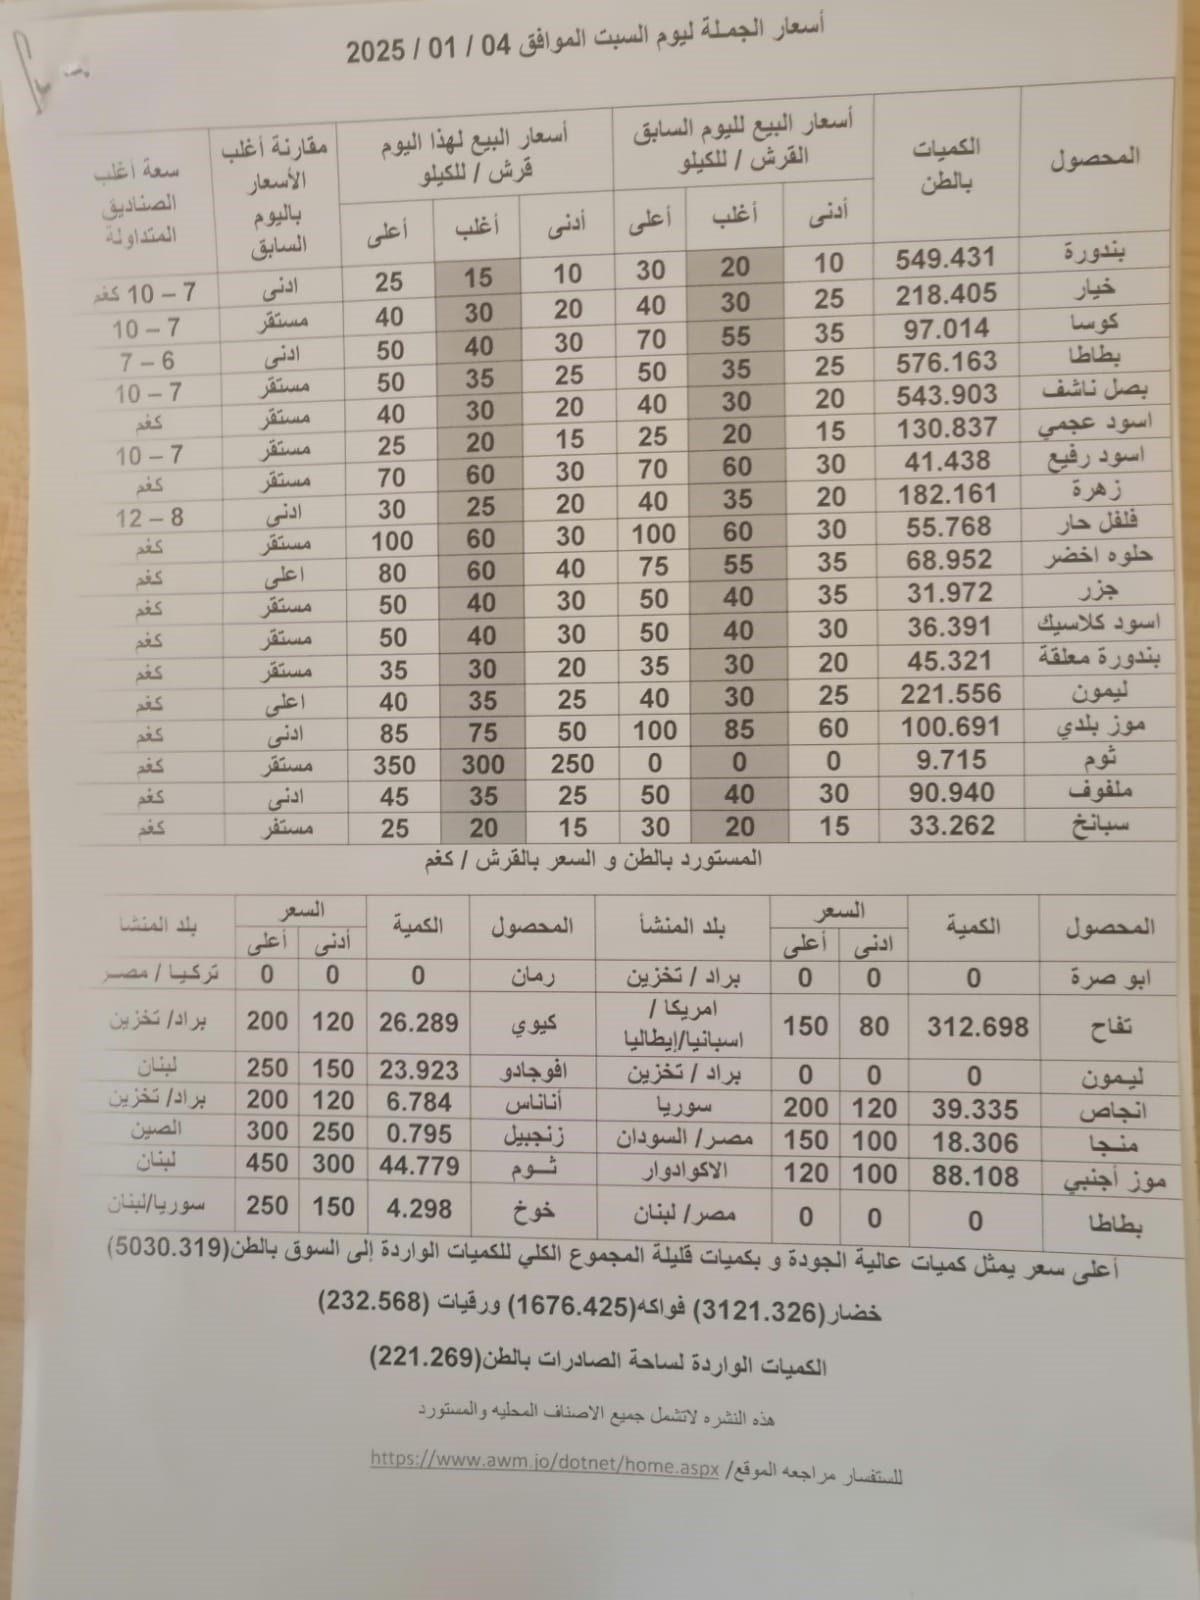 أسعار الجملة ليوم السبت الموافق 04 / 01 / 2025
المحصول الكميات بالطن أسعار البيع لليوم السابق القرش / للكيلو أسعار البيع لهذا اليوم قرش / للكيلو مقارنة أغلب الأسعار باليوم السابق سعة أغلب الصناديق المتداولة
أدنى أغلب أعلى أدنى أغلب أعلى
بندورة 549.431 10 20 30 10 15 25 ادنى 7 – 10 كغم
خيار 218.405 25 30 40 20 30 40 مستقر 7 – 10
كوسا 97.014 35 55 70 30 40 50 ادنى 6 – 7
بطاطا 576.163 25 35 50 25 35 50 مستقر 7 – 10
بصل ناشف 543.903 20 30 40 20 30 40 مستقر كغم
اسود عجمي 130.837 15 20 25 15 20 25 مستقر 7 – 10
اسود رفيع 41.438 30 60 70 30 60 70 مستقر كغم
زهرة 182.161 20 35 40 20 25 30 ادنى 8 – 12
فلفل حار 55.768 30 60 100 30 60 100 مستقر كغم
حلوه اخضر 68.952 35 55 75 40 60 80 اعلى كغم
جزر 31.972 35 40 50 30 40 50 مستقر كغم
اسود كلاسيك 36.391 30 40 50 30 40 50 مستقر كغم
بندورة معلقة 45.321 20 30 35 20 30 35 مستقر كغم
ليمون 221.556 25 30 40 25 35 40 اعلى كغم
موز بلدي 100.691 60 85 100 50 75 85 ادنى كغم
ثوم 9.715 0 0 0 250 300 350 مستقر كغم
ملفوف 90.940 30 40 50 25 35 45 ادنى كغم
سبانخ 33.262 15 20 30 15 20 25 مستقر كغم
المستورد بالطن و السعر بالقرش / كغم
المحصول الكمية السعر بلد المنشأ المحصول الكمية السعر بلد المنشا
ادنى أعلى أدنى أعلى
ابو صرة 0 0 0 براد / تخزين رمان 0 0 0 تركيا / مصر
تفاح 312.698 80 150 امريكا / اسبانيا/إيطاليا كيوي 26.289 120 200 براد/ تخزين
ليمون 0 0 0 براد / تخزين افوجادو 23.923 150 250 لبنان
انجاص 39.335 120 200 سوريا أناناس 6.784 120 200 براد/ تخزين
منجا 18.306 100 150 مصر/ السودان زنجبيل 0.795 250 300 الصين
موز أجنبي 88.108 100 120 الاكوادوار ثوم 44.779 300 450 لبنان
بطاطا 0 0 0 مصر/ لبنان خوخ 4.298 150 250 سوريا/لبنان
أعلى سعر يمثل كميات عالية الجودة و بكميات قليلة المجموع الكلي للكميات الواردة إلى السوق بالطن(5030.319)
خضار(3121.326) فواكه(1676.425) ورقيات (232.568)
الكميات الواردة لساحة الصادرات بالطن(221.269)
هذه النشره لاتشمل جميع الاصناف المحليه والمستورد
للستفسار مراجعه الموقع/ https://www.awm.jo/dotnet/home.aspx